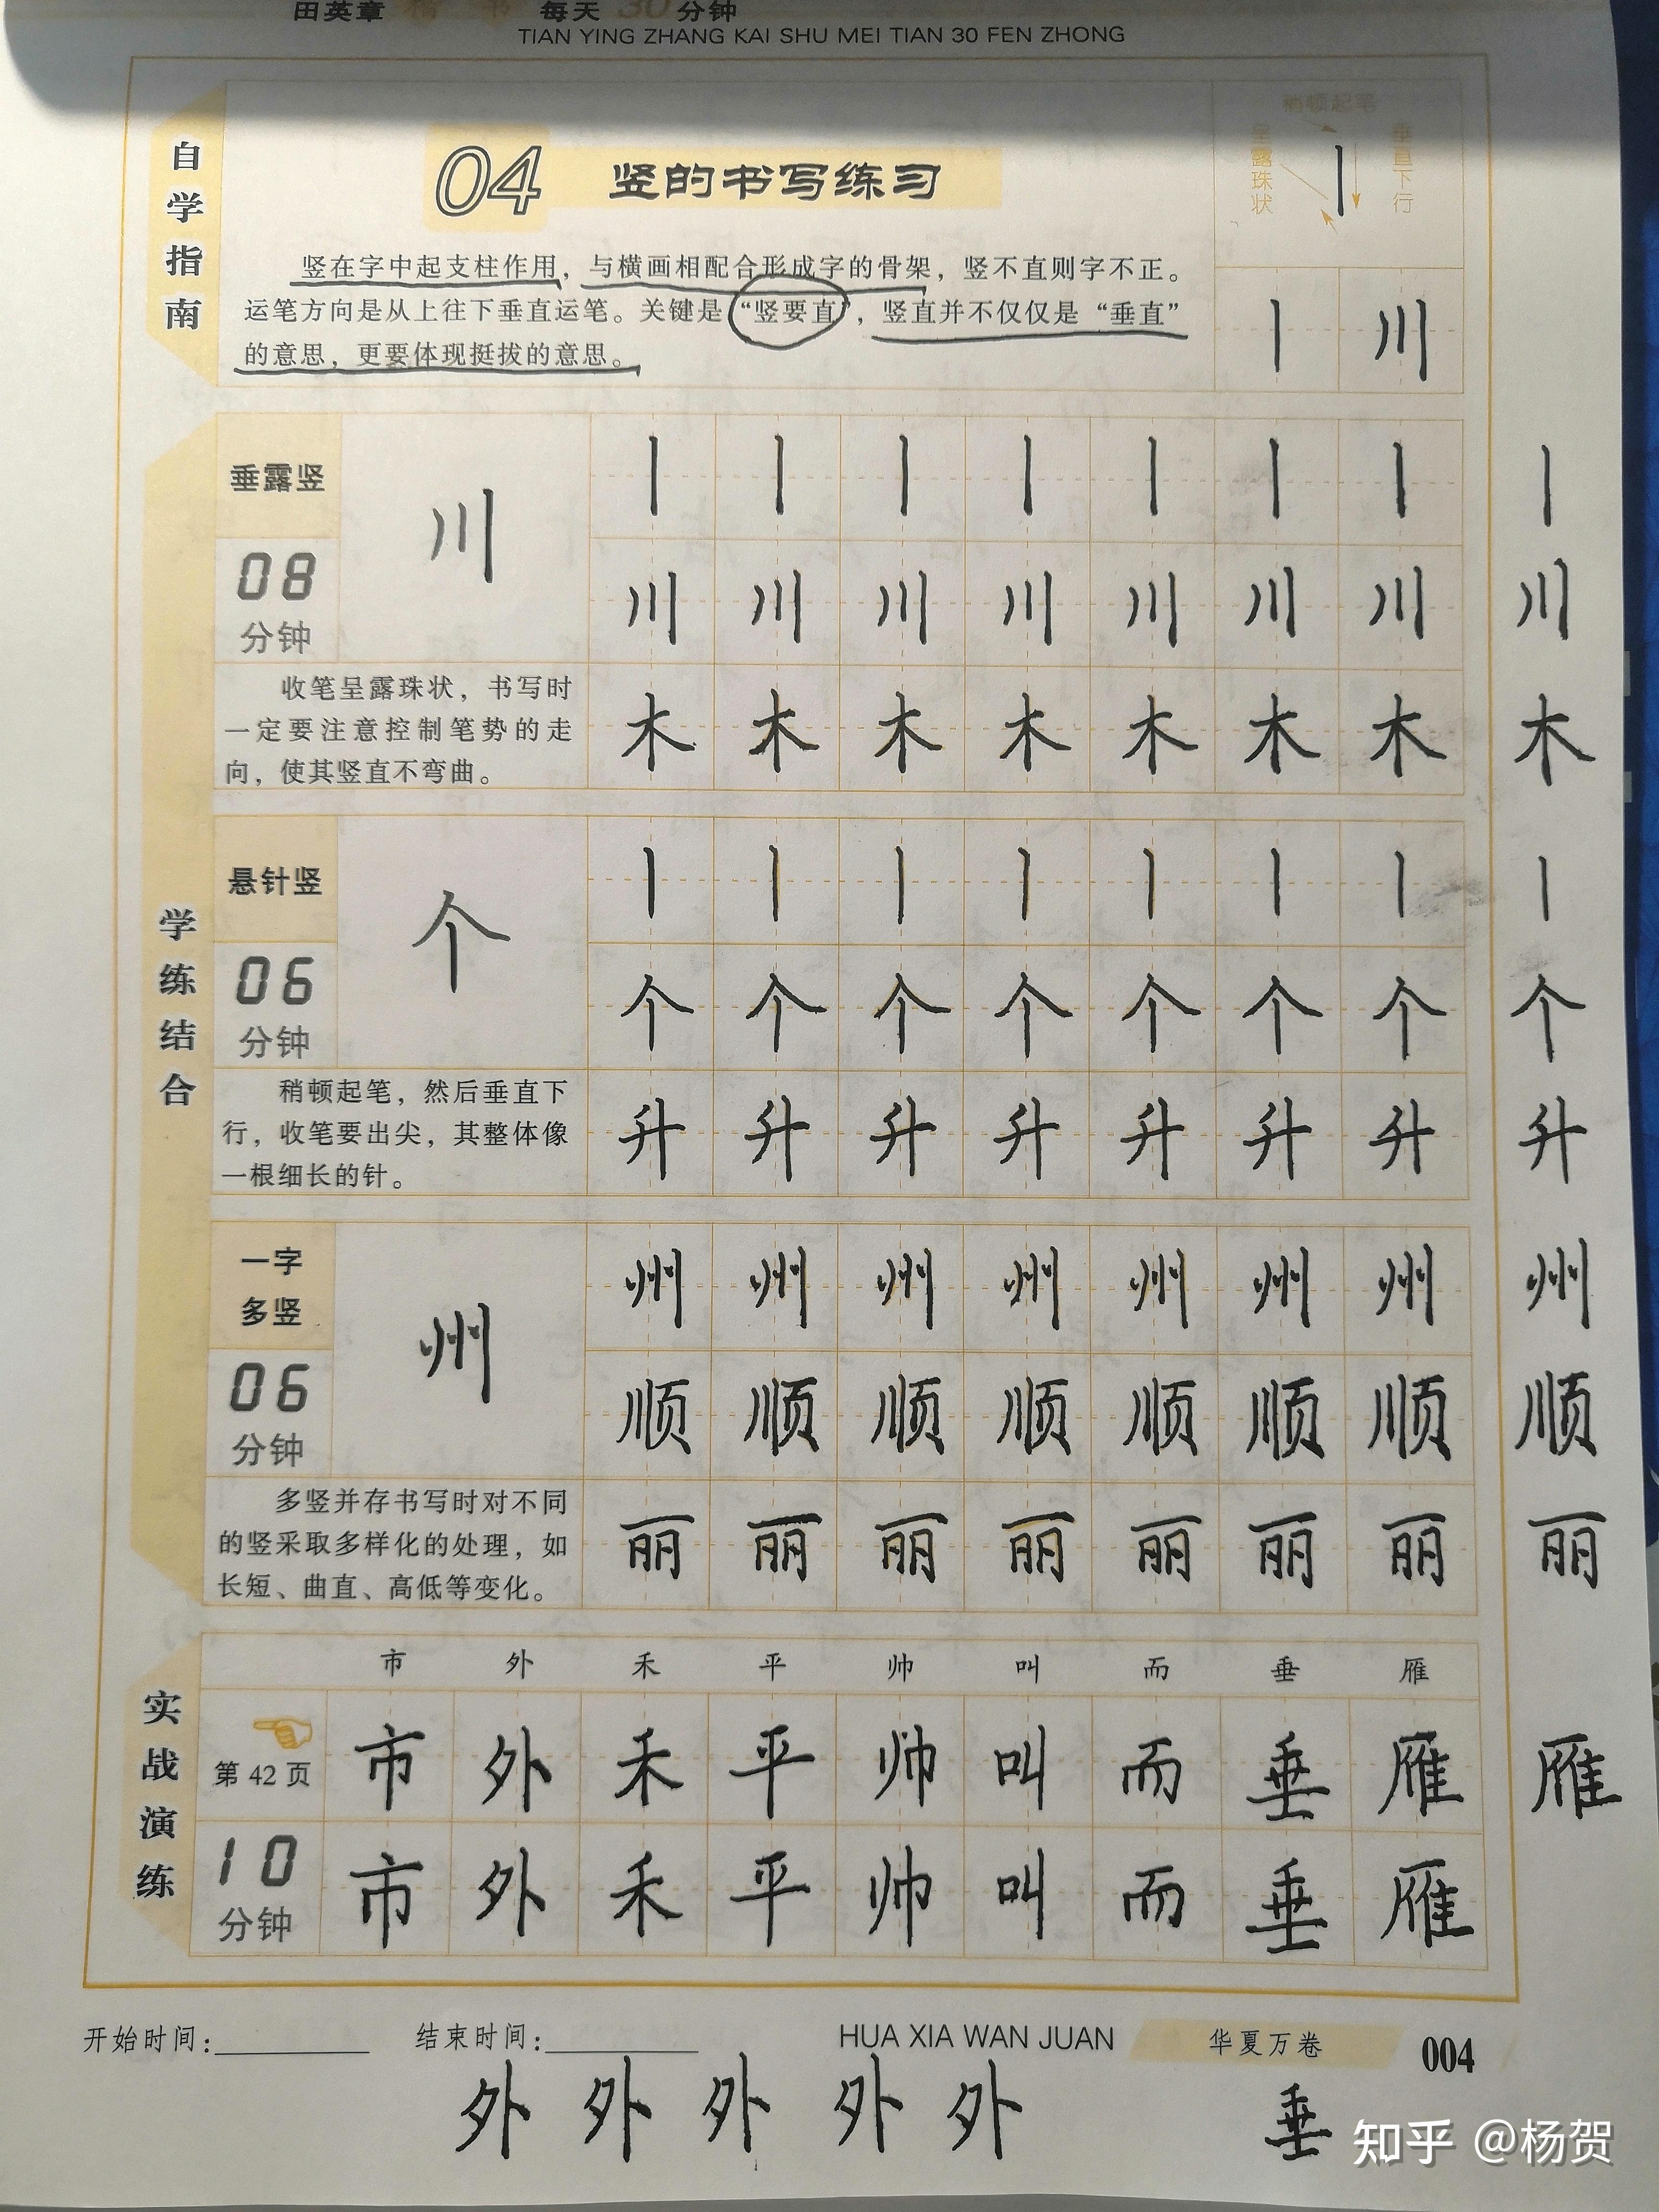 田英章 楷书 每天 30 分钟
TIAN YING ZHANG KAI SHU MEI TIAN 30 FEN ZHONG
自学指南
04 竖的书写练习
稍顿起笔
呈露珠状
垂直下行
竖在字中起支柱作用，与横画相配合形成字的骨架，竖不直则字不正。
运笔方向是从上往下垂直运笔。关键是“竖要直”，竖直并不仅仅是“垂直”
的意思，更要体现挺拔的意思。
丨 川
学练结合
垂露竖
08
分钟
川
收笔呈露珠状，书写时
一定要注意控制笔势的走
向，使其竖直不弯曲。
丨 丨 丨 丨 丨 丨 丨 丨
川 川 川 川 川 川 川 川
木 木 木 木 木 木 木 木
悬针竖
06
分钟
个
稍顿起笔，然后垂直下
行，收笔要出尖，其整体像
一根细长的针。
丨 丨 丨 丨 丨 丨 丨 丨
个 个 个 个 个 个 个 个
升 升 升 升 升 升 升 升
一字
多竖
06
分钟
州
多竖并存书写时对不同
的竖采取多样化的处理，如
长短、曲直、高低等变化。
州 州 州 州 州 州 州 州
顺 顺 顺 顺 顺 顺 顺 顺
丽 丽 丽 丽 丽 丽 丽 丽
实战演练
市 外 禾 平 帅 叫 而 垂 雁
第 42 页
市 外 禾 平 帅 叫 而 垂 雁 雁
10
分钟
市 外 禾 平 帅 叫 而 垂 雁
开始时间：
结束时间：
HUA XIA WAN JUAN
华夏万卷
004
外 外 外 外 外 垂
知乎 @杨贺